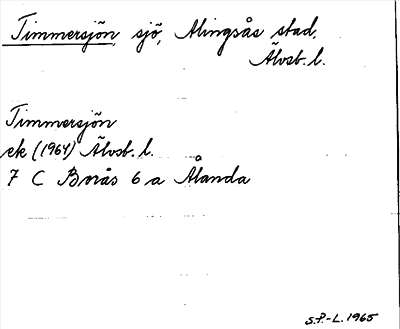 Timmersjön sjö, Alingsås stad,
Älvsb. l.
Timmersjön
ek (1964) Älvsb. l.
7 C Borås 6 a Ålanda
S.P.-L. 1965